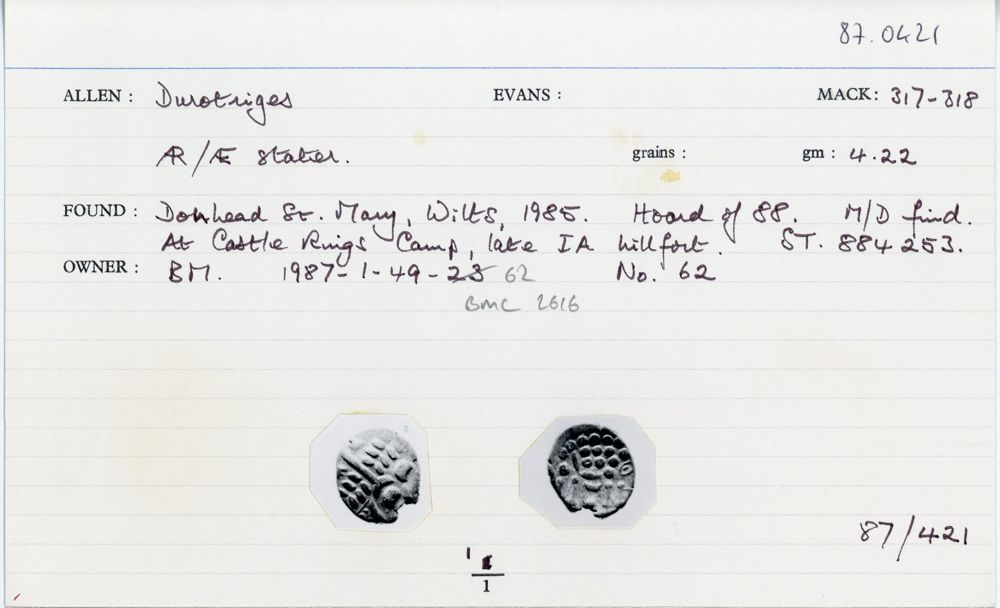 87.0421
ALLEN : Durotriges EVANS : MACK: 317-318
AR/Æ stater. grains : gm : 4.22
FOUND : Donhead St. Mary, Wilts, 1985. Hoard of 88. M/D find.
At Castle Rings Camp, late IA hillfort. ST. 884 253.
OWNER : BM. 1987-1-49-23 62 No. 62
BMC 2616
87/421
1
1